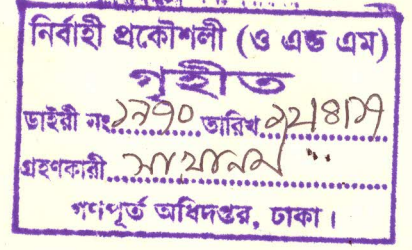 নির্বাহী প্রকৌশলী (ও এন্ড এম)
গৃহীত
ডাইরী নং ১৭৭০ তারিখ
গ্রহণকারী
গণপূর্ত অধিদপ্তর, ঢাকা।